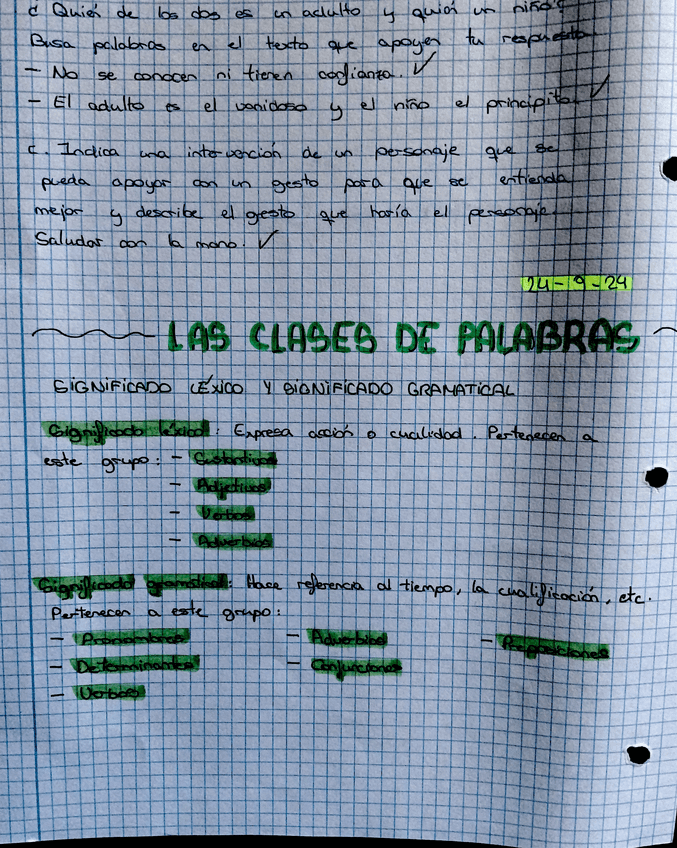 d Quién de los dos es un adulto y quién un niño?
Busa palabras en el texto que apoyen tu respuesta
- No se conocen ni tienen confianza. ✓
- El adulto es el vanidoso y el niño el principito. ✓
c. Indica una intervención de un personaje que se
pueda apoyar con un gesto para que se entienda
mejor y describe el gesto que haría el personaje.
Saludar con la mano. ✓
24-9-24
LAS CLASES DE PALABRAS
SIGNIFICADO LÉXICO Y SIGNIFICADO GRAMATICAL
Significado léxico: Expresa acción o cualidad. Pertenecen a
este grupo: - Sustantivos
- Adjetivos
- Verbos
- Adverbios
Significado gramatical: Hace referencia al tiempo, la cualificación, etc.
Pertenecen a este grupo:
- Pronombres - Adverbios - Preposiciones
- Determinantes - Conjunciones
- Verbos